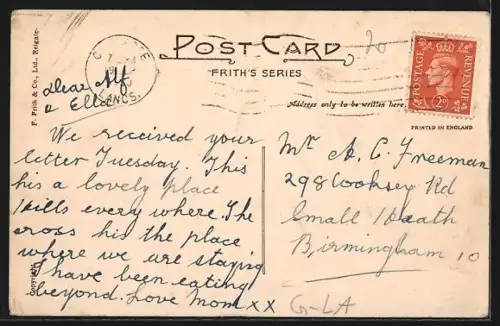 POST CARD
FRITH'S SERIES
F. Frith & Co., Ltd., Reigate.
LANCS.
20
POSTAGE
REVENUE
2D
Address only to be written here.
PRINTED IN ENGLAND
Dear Alf
& Ella
We received your
letter Tuesday. This
his a lovely place
hills every where. The
cross his the place
where we are staying
I have been eating
beyond. Love Mom xx
Mr A. C. Freeman
298 Cooksey Rd
Small Heath
Birmingham 10
G-LA
Copyright.